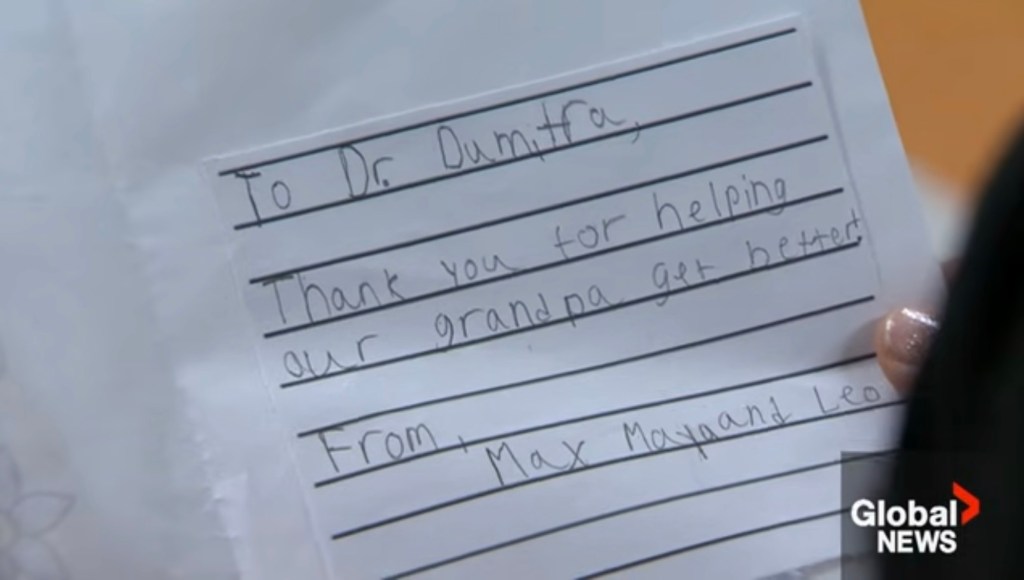 To Dr. Dumitra,
Thank you for helping
our grandpa get better!
From,
Max Maya and Leo
Global
NEWS